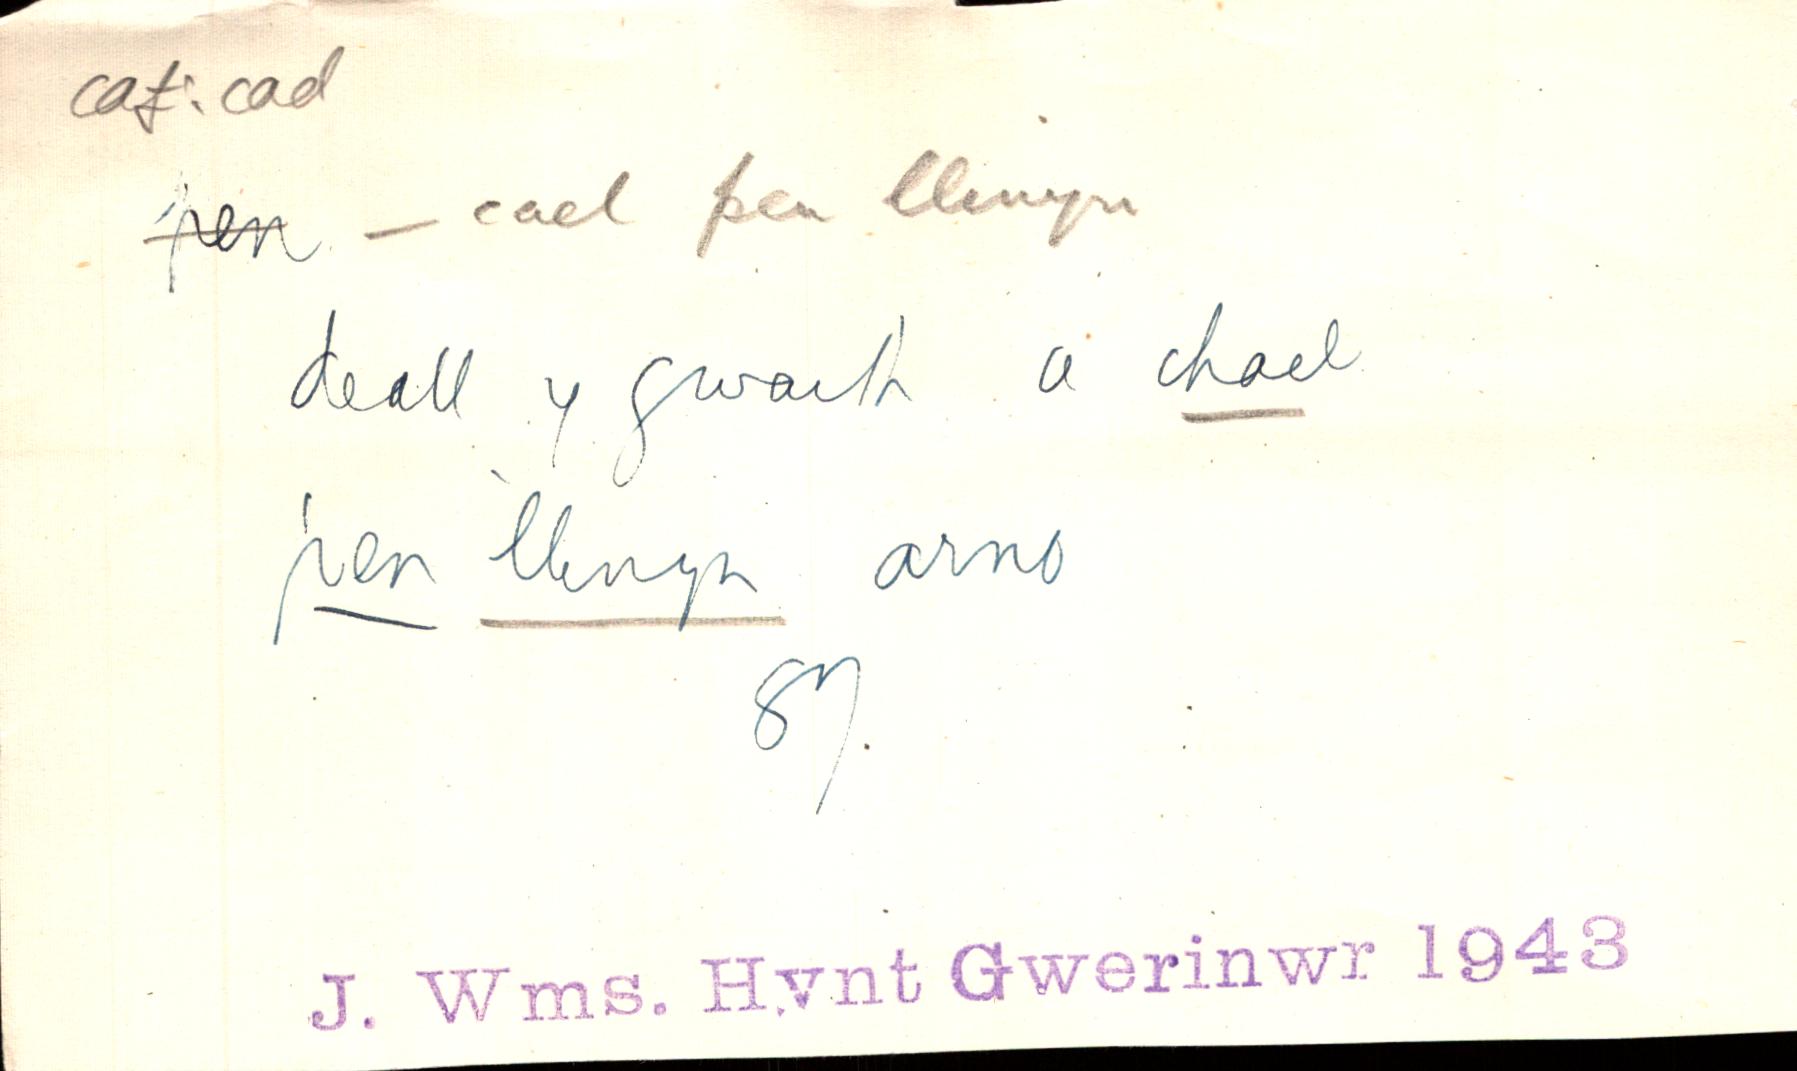 caf: cad
pen — cael pen llinyn
deall y gwaith a chael
pen llinyn arno
87.
J. Wms. Hynt Gwerinwr 1943